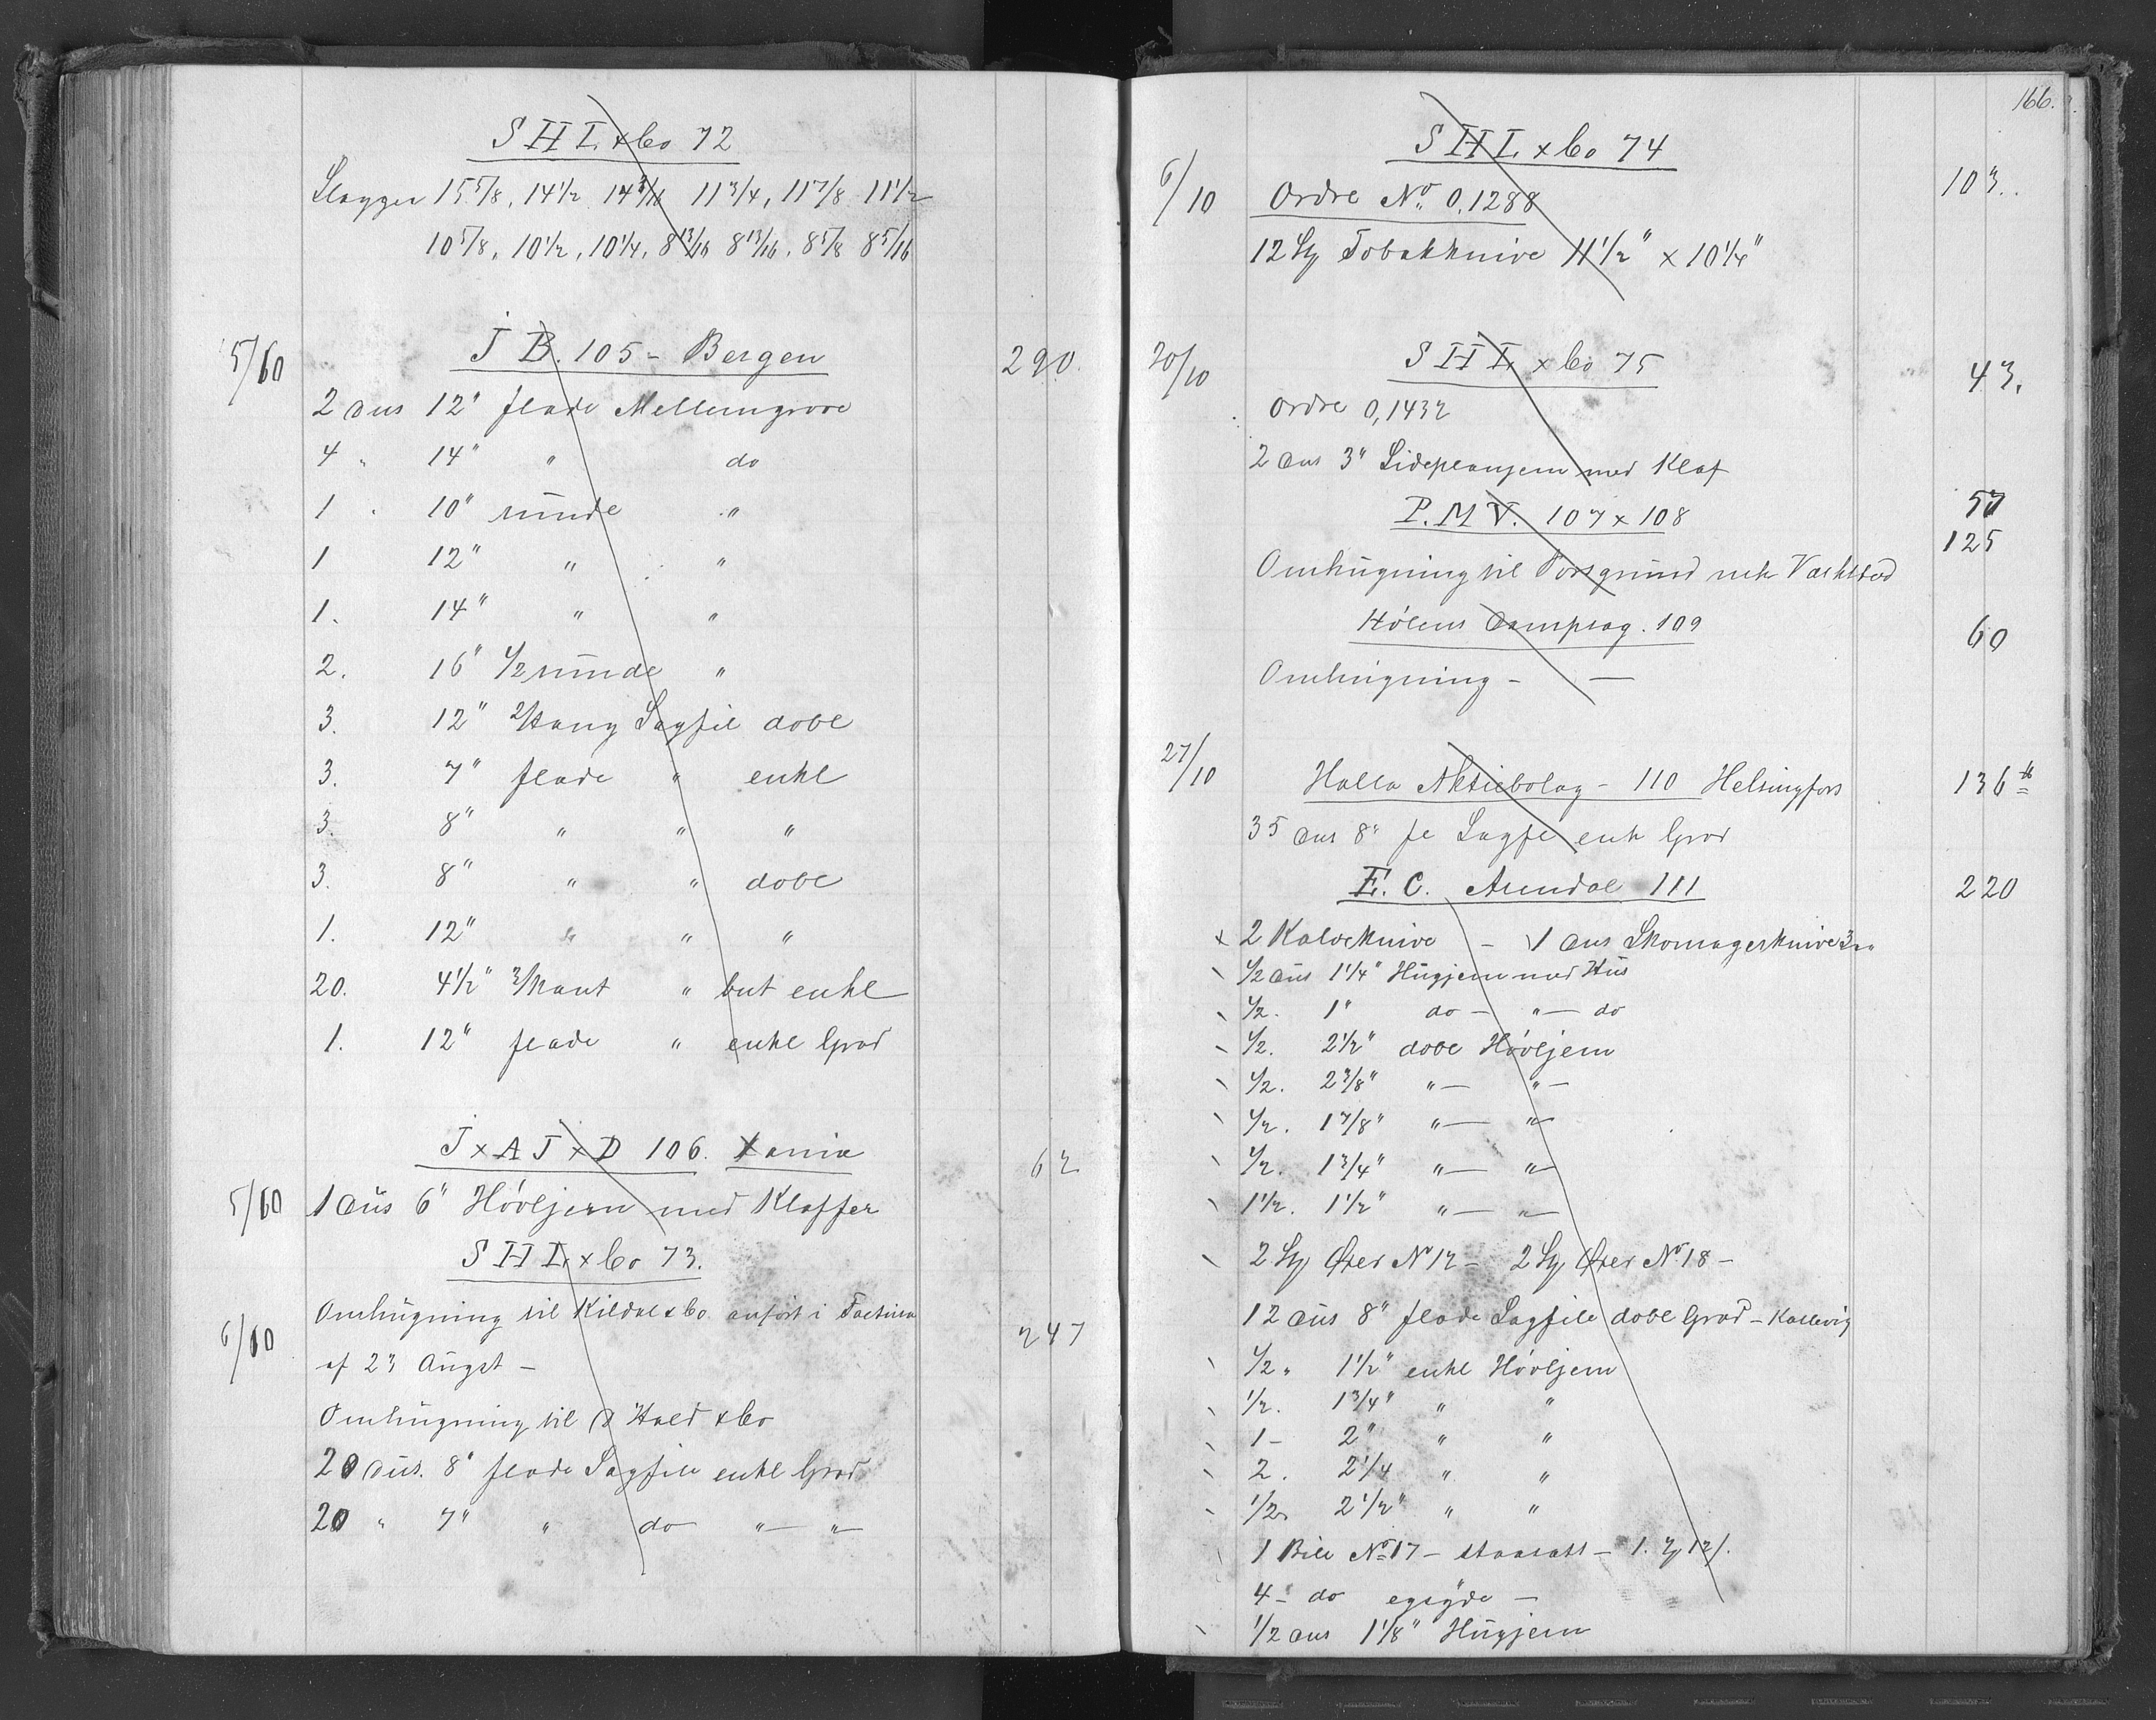 S H L x Co 72
Slagger 15 5/8, 14 1/2 14 3/16 11 3/4, 11 7/8 11 1/2
10 5/8, 10 1/2, 10 1/4, 8 13/16 8 13/16, 8 5/8 8 5/16
5/10 J B. 105 - Bergen 290.
2 Dus 12" flade Mellemgrove
4 " 14" " do
1 " 10" runde "
1 12" " "
1. 14" " "
2. 16" 1/2 runde "
3. 12" 2/Kang Sagfil dobl
3. 7" flade " enkl
3. 8" " " "
3. 8" " " dobl
1. 12" " " "
20. 4 1/2" 3/Kant " but enkl
1. 12" flade " enkl Grad
J x A J x D 106. Xania 62
5/10 1 Dus 6" Høvljern med Klaffer
S H L x Co 73.
Omhugning til Kildal & Co. anført i Factura
6/10 247
af 23 Augst -
Omhugning til O Hald & Co
20 Dus. 8" flade Sagfile enkl Grad
20 " 7" " do " — " —
166.
S H L x Co 74
6/10 Ordre No. 0.1288 103.
12 St Tobakknive 11 1/2" x 10 1/4"
20/10 S H L x Co 75 43.
Ordre 0,1432
2 Dus 3" Sideplanjern med Klaf
P. M V. 107 x 108 57
125
Omhugning til Porsgrund mek Værksted
Hølens Dampsag. 109 60
Omhugning - —
27/10 Halla Aktiebolag - 110 Helsingfors 136
35 Dus 8" fl Sagfil enk Grad
E. C. Arendal 111 220
x 2 Kalveknive - 1 Dus Skomagerknive
1/2 Dus 1 1/4" Hugjern med Hus
1/2. 1" do - " — do
1/2. 2 1/2" dobl Høvljern
1/2. 2 3/8" " — " —
1/2. 1 7/8" " — "
1/2. 1 3/4" " — "
1 1/2. 1 1/2" " — " —
2 St Øxer No 12 - 2 St Øxer No 18 -
12 Dus 8" flade Sagfile dobl Grad - Kallevig
1/2 " 1 1/2" enkl Høvljern
1/2. 1 3/4" " "
1 - 2" " "
2. 2 1/4 " "
1/2 2 1/2" " "
1 Bile No 17 -
4 - do —
1/2 Dus 1 1/8" Hugjern